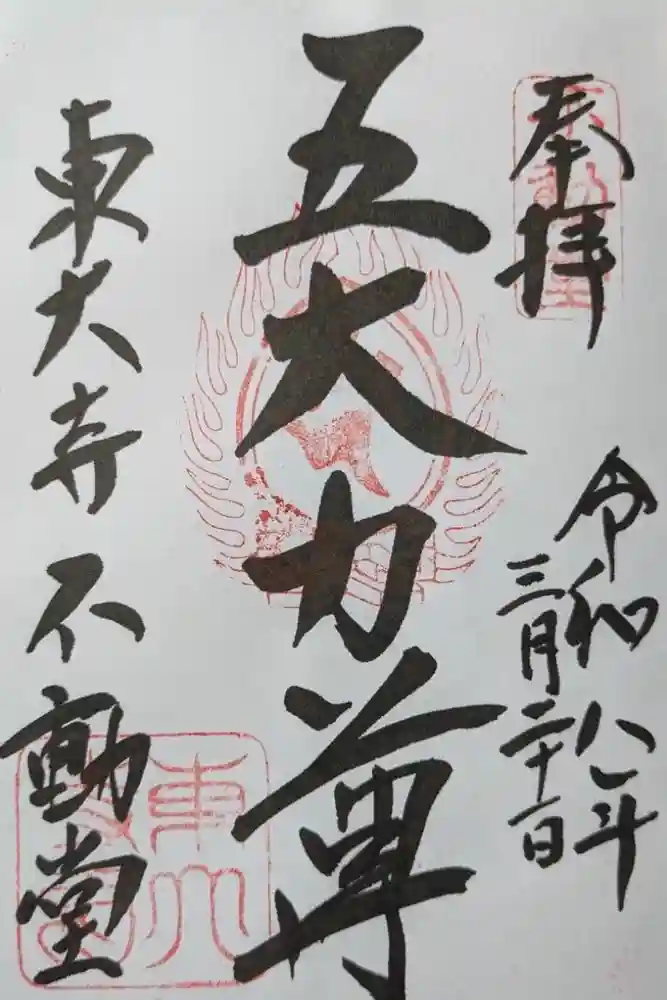 奉拝
不動堂
令和八年
三月二十一日
五大力尊
東大寺不動堂
東大